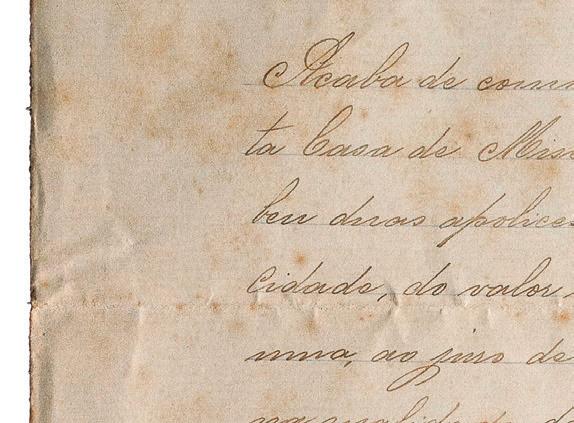 Acaba de comm
ta Casa de Mise
beu duas apolices
cidade, do valor
uma, ao juro de